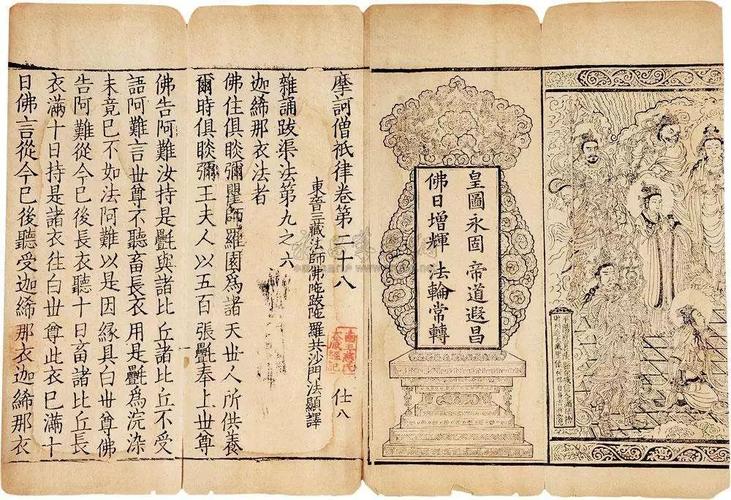 皇圖永固 帝道遐昌
佛日增輝 法輪常轉
摩訶僧祇律卷第二十八 仕八
東晉三藏法師佛陀跋陀羅共沙門法顯譯
雜誦跋渠法第九之六
迦絺那衣法者
佛住俱睒彌瞿師羅園為諸天世人所供養
爾時俱睒彌王夫人以五百張氎奉上世尊
佛告阿難汝持是氎與諸比丘諸比丘不受
語阿難言世尊不聽畜長衣用是氎為浣染
未竟已不如法阿難以是因緣具白世尊佛
告阿難從今已後長衣聽十日畜諸比丘長
衣滿十日持是諸衣往白世尊此衣已滿十
日佛言從今已後聽受迦絺那衣迦絺那衣